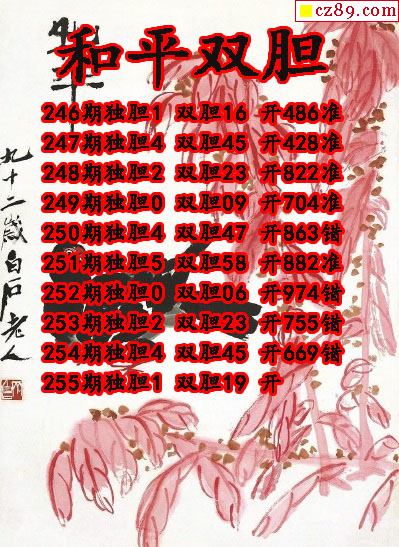 cz89.com
和平双胆
246期独胆1 双胆16 开486准
247期独胆4 双胆45 开428准
248期独胆2 双胆23 开822准
249期独胆0 双胆09 开704准
250期独胆4 双胆47 开863错
251期独胆5 双胆58 开882准
252期独胆0 双胆06 开974错
253期独胆2 双胆23 开755错
254期独胆4 双胆45 开669错
255期独胆1 双胆19 开
九十二岁白石老人